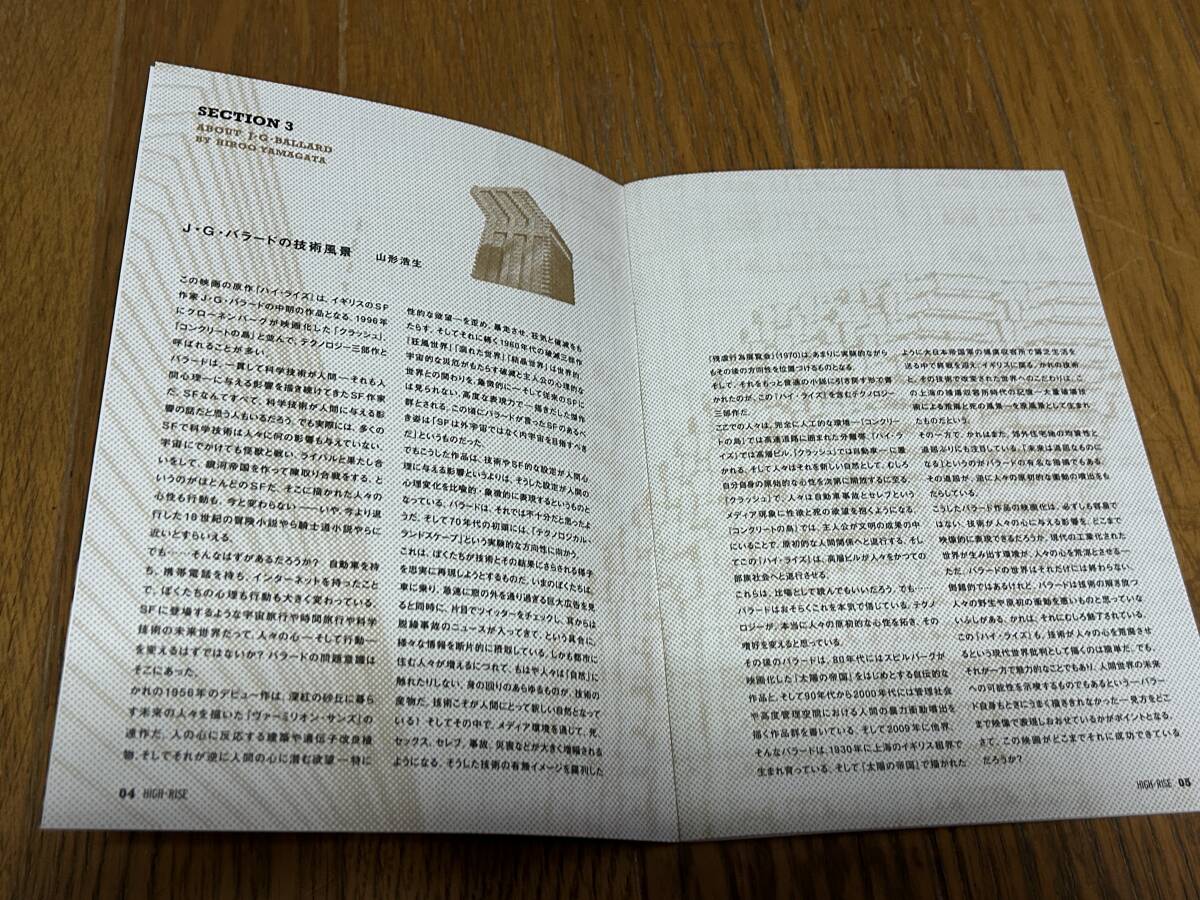 SECTION 3
ABOUT J・G・BALLARD
BY HIROO YAMAGATA
J・G・バラードの技術風景
山形浩生
この映画の原作『ハイ・ライズ』は、イギリスのSF
作家J・G・バラードの中期の作品となる。1996年
にクローネンバーグが映画化した『クラッシュ』、
『コンクリートの島』と並んで、テクノロジー三部作と
呼ばれることが多い。
バラードは、一貫して科学技術が人間―それも人
間心理―に与える影響を描き続けてきたSF作家
だ。SFなんてすべて、科学技術が人間に与える影
響の話だと思う人もいるだろう。でも実際には、多くの
SFで科学技術は人々に何の影響も与えていない。
宇宙にでかけても怪獣と戦い、ライバルと果たし合
いをして、銀河帝国を作って陣取り合戦をする、と
いうのがほとんどのSFだ。そこに描かれた人々の
心性も行動も、今と変わらない――いや、今より退
行した18世紀の冒険小説やら騎士道小説やらに
近いとすらいえる。
でも……そんなはずがあるだろうか? 自動車を持
ち、携帯電話を持ち、インターネットを持ったこと
で、ぼくたちの心理も行動も大きく変わっている。
SFに登場するような宇宙旅行や時間旅行や科学
技術の未来世界だって、人々の心―そして行動―
を変えるはずではないか? バラードの問題意識は
そこにあった。
かれの1956年のデビュー作は、深紅の砂丘に暮ら
す未来の人々を描いた『ヴァーミリオン・サンズ』の
連作だ。人の心に反応する建築や遺伝子改良植
物、そしてそれが逆に人間の心に潜む欲望―特に
性的な欲望―を歪め、暴走させ、狂気と破滅をも
たらす。そしてそれに続く1960年代の破滅三部作
『狂風世界』『溺れた世界』『結晶世界』は世界的、
宇宙的な災厄がもたらす破滅と主人公の心理的な
世界との関わりを、象徴的に―そして従来のSFに
は見られない、高度な表現力で―描きだした傑作
群とされる。この頃にバラードが言ったSFのあるべ
き姿は「SFは外宇宙ではなく内宇宙を目指すべき
だ」というものだった。
でもこうした作品は、技術やSF的な設定が人間心
理に与える影響というよりは、そうした設定が人間の
心理変化を比喩的・象徴的に表現するというものと
なっている。バラードは、それでは不十分だと思ったよ
うだ。そして70年代の初頭には、「テクノロジカル・
ランドスケープ」という実験的な方向性に向かう。
これは、ぼくたちが技術とその結果にさらされる様子
を忠実に再現しようとするものだ。いまのぼくたちは、
車に乗り、急速に窓の外を通り過ぎる巨大広告を見
ると同時に、片目でツイッターをチェックし、耳からは
脱線事故のニュースが入ってきて、という具合に、
様々な情報を断片的に摂取している。しかも都市に
住む人々が増えるにつれて、もはや人々は「自然」に
触れたりしない。身の回りのあらゆるものが、技術の
産物だ。技術こそが人間にとって新しい自然となって
いる! そしてその中で、メディア環境を通じて、死、
セックス、セレブ、事故、災害などが大きく増幅される
ようになる。そうした技術の有無イメージを羅列した
04 HIGH-RISE
『残虐行為展覧会』(1970)は、あまりに実験的ながら
もその後の方向性を位置づけるものとなる。
そして、それをもっと普通の小説に引き戻す形で書
かれたのが、この『ハイ・ライズ』を含むテクノロジー
三部作だ。
ここでの人々は、完全に人工的な環境―『コンクリー
トの島』では高速道路に囲まれた分離帯、『ハイ・ラ
イズ』では高層ビル、『クラッシュ』では自動車―に置
かれる。そして人々はそれを新しい自然として、むしろ
自分自身の原始的な心性を次第に開放するに至る。
『クラッシュ』で、人々は自動車事故とセレブという
メディア現象に性欲と死の欲望を抱くようになる。
『コンクリートの島』では、主人公が文明の成果の中
にいることで、原初的な人間関係へと退行する。そし
てこの『ハイ・ライズ』は、高層ビルが人々をかつての
部族社会へと退行させる。
これらは、比喩として読んでもいいだろう。でも…
バラードはおそらくこれを本気で信じている。テクノ
ロジーが、本当に人々の原初的な心性を拓き、その
嗜好を変えると思っている
その後のバラードは、80年代にはスピルバーグが
映画化した『太陽の帝国』をはじめとする自伝的な
作品と、そして90年代から2000年代には管理社会
や高度管理空間における人間の暴力衝動噴出を
描く作品群を書いている。そして2009年に他界。
そんなバラードは、1930年に上海のイギリス租界で
生まれ育っている。そして『太陽の帝国』で描かれた
ように大日本帝国軍の捕虜収容所で窮乏生活を
送る中で終戦を迎え、イギリスに戻る。かれの技術
と、その技術で改変された世界へのこだわりは、こ
の上海の捕虜収容所時代の記憶―大量破壊技
術による荒廃と死の風景―を原風景として生まれ
たものだという。
その一方で、かれはまた、郊外住宅地の均質性と
退屈ぶりにも注目している。「未来は退屈なものに
なる」というのがバラードの有名な指摘でもある。
その退屈が、逆に人々の原初的な衝動の噴出をも
たらしている。
こうしたバラード作品の映画化は、必ずしも容易で
はない。技術が人々の心に与える影響を、どこまで
映像的に表現できるだろうか。現代の工業化された
世界が生み出す環境が、人々の心を荒涼とさせる―
ただ、バラードの世界はそれだけには終わらない。
倒錯的ではあるけれど、バラードは技術の解き放つ
人々の野生や原初の衝動を悪いものと思っていな
いふしがある。かれは、それにむしろ魅了されている。
この『ハイ・ライズ』も、技術が人々の心を荒廃させ
るという現代世界批判として描くのは簡単だ。でも、
それが一方で魅力的なことでもあり、人間世界の未来
への可能性を示唆するものでもあるという―バラー
ド自身もときにうまく描ききれなかった―見方をどこ
まで映像で表現しおおせているかがポイントとなる。
さて、この映画がどこまでそれに成功できている
だろうか?
HIGH-RISE 05